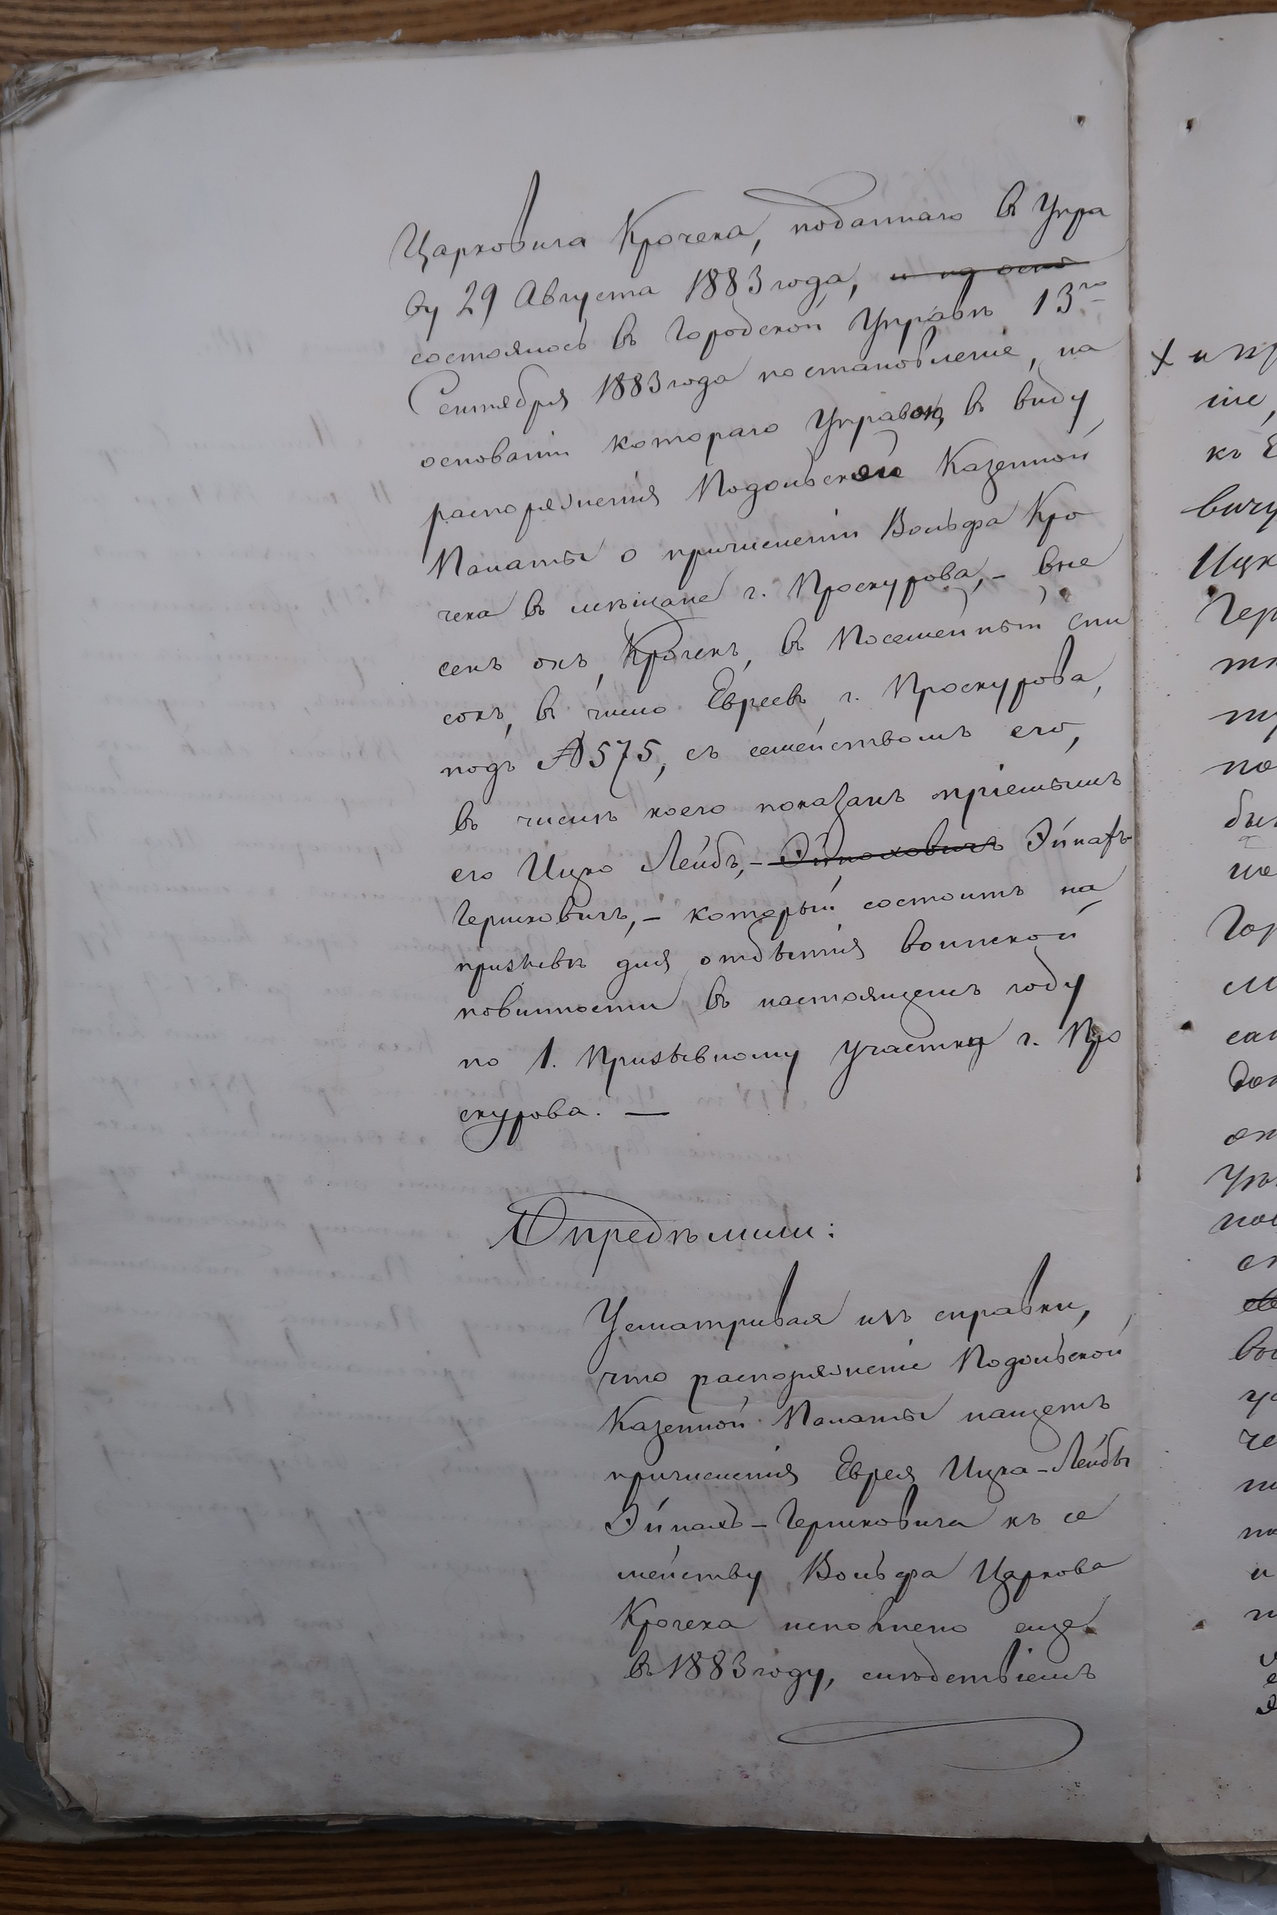 Царковича Крочека, поданнаго в Упра
ву 29 Августа 1883 года,
состоялось въ Городской Управѣ 13го
Сентября 1883 года постановленіе, на
основаніи котораго Управою, въ виду
распоряженія Подольской Казенной
Палаты о причисленіи Вольфа Кро
чека въ мѣщане г. Проскурова, – вне
сенъ онъ, Крочекъ, въ Посемейный спи
сокъ, въ число Евреевъ г. Проскурова,
подъ № 575, съ семействомъ его,
въ числѣ коего показанъ пріемышъ
его Ицко Лейбъ, – Эйнахъ
Гершковичъ, – который состоитъ на
призывѣ для отбытія воинской
повинности въ настоящемъ году
по 1. Призывному участку г. Про
скурова. —
Опредѣлили:
Усматривая изъ справки,
что распоряженіе Подольской
Казенной Палаты нащетъ
причисленія Еврея Ицка-Лейбы
Эйнахъ-Гершковича къ се
мейству Вольфа Царкова
Крочека исполнено еще
въ 1883 году, слѣдствіемъ
х и пр
къ Е
вичу
Ицк
Гер